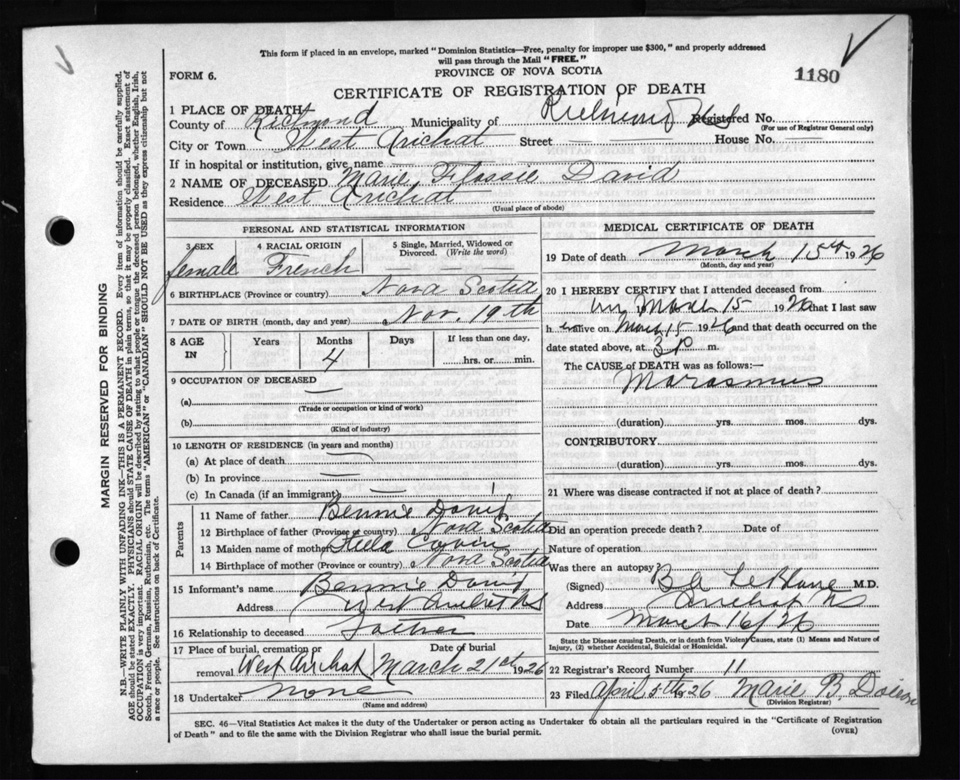 This form if placed in an envelope, marked "Dominion Statistics—Free, penalty for improper use $300," and properly addressed
will pass through the Mail "FREE."
FORM 6.
PROVINCE OF NOVA SCOTIA
1180
CERTIFICATE OF REGISTRATION OF DEATH
1 PLACE OF DEATH
County of Richmond Municipality of Richmond Registered No.
(For use of Registrar General only)
City or Town West Arichat Street House No.
If in hospital or institution, give name
2 NAME OF DECEASED Marie Flossie David
Residence West Arichat
(Usual place of abode)
PERSONAL AND STATISTICAL INFORMATION
3 SEX 4 RACIAL ORIGIN 5 Single, Married, Widowed or Divorced. (Write the word)
female French
6 BIRTHPLACE (Province or country) Nova Scotia
7 DATE OF BIRTH (month, day and year) Nov. 19th
8 AGE IN Years Months Days If less than one day,
4 hrs. or min.
9 OCCUPATION OF DECEASED
(a)
(Trade or occupation or kind of work)
(b)
(Kind of industry)
10 LENGTH OF RESIDENCE (in years and months)
(a) At place of death
(b) In province
(c) In Canada (if an immigrant)
Parents
11 Name of father Bennie David
12 Birthplace of father (Province or country) Nova Scotia
13 Maiden name of mother
14 Birthplace of mother (Province or country) Nova Scotia
15 Informant's name Bennie David
Address West Arichat NS
16 Relationship to deceased Father
17 Place of burial, cremation or removal Date of burial
West Arichat March 21st 1926
18 Undertaker none
(Name and address)
MEDICAL CERTIFICATE OF DEATH
19 Date of death March 15th 1926
(Month, day and year)
20 I HEREBY CERTIFY that I attended deceased from
March 15 1926 that I last saw
h er alive on March 15 1926 and that death occurred on
date stated above, at 3 p m.
The CAUSE of DEATH was as follows:—
Marasmus
(duration) yrs. mos. dys.
CONTRIBUTORY
(duration) yrs. mos. dys.
21 Where was disease contracted if not at place of death?
Did an operation precede death? Date of
Nature of operation
Was there an autopsy?
(Signed) B A LeBlanc M.D.
Address Arichat NS
Date March 16/26
State the Disease causing Death, or in death from Violent Causes, state (1) Means and Nature of
Injury, (2) whether Accidental, Suicidal or Homicidal.
22 Registrar's Record Number 11
23 Filed April 5th 1926 Marie B.
(Division Registrar)
SEC. 46—Vital Statistics Act makes it the duty of the Undertaker or person acting as Undertaker to obtain all the particulars required in the "Certificate of Registration
of Death" and to file the same with the Division Registrar who shall issue the burial permit.
(OVER)
MARGIN RESERVED FOR BINDING
N.B.—WRITE PLAINLY WITH UNFADING INK—THIS IS A PERMANENT RECORD. Every item of information should be carefully supplied.
AGE should be stated EXACTLY. PHYSICIANS should STATE CAUSE OF DEATH in plain terms, so that it may be properly classified. Exact statement of
OCCUPATION is very important. RACIAL ORIGIN will be described by stating to what people or tongue the deceased person belonged, whether English, Irish,
Scotch, French, German, Russian, Ruthenian, etc. The terms "AMERICAN" or "CANADIAN" SHOULD NOT BE USED as they express citizenship but not
a race or people. See instructions on back of Certificate.